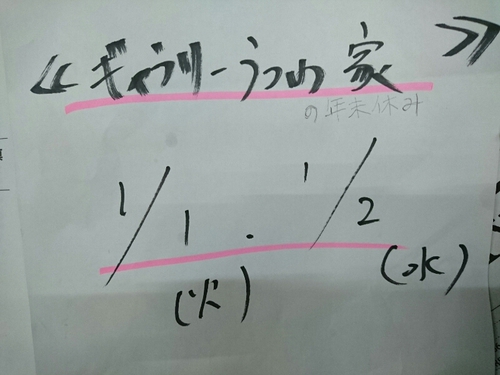 ≪ギャラリーうつわ家≫
の年末休み
1/1・1/2
(火) (水)